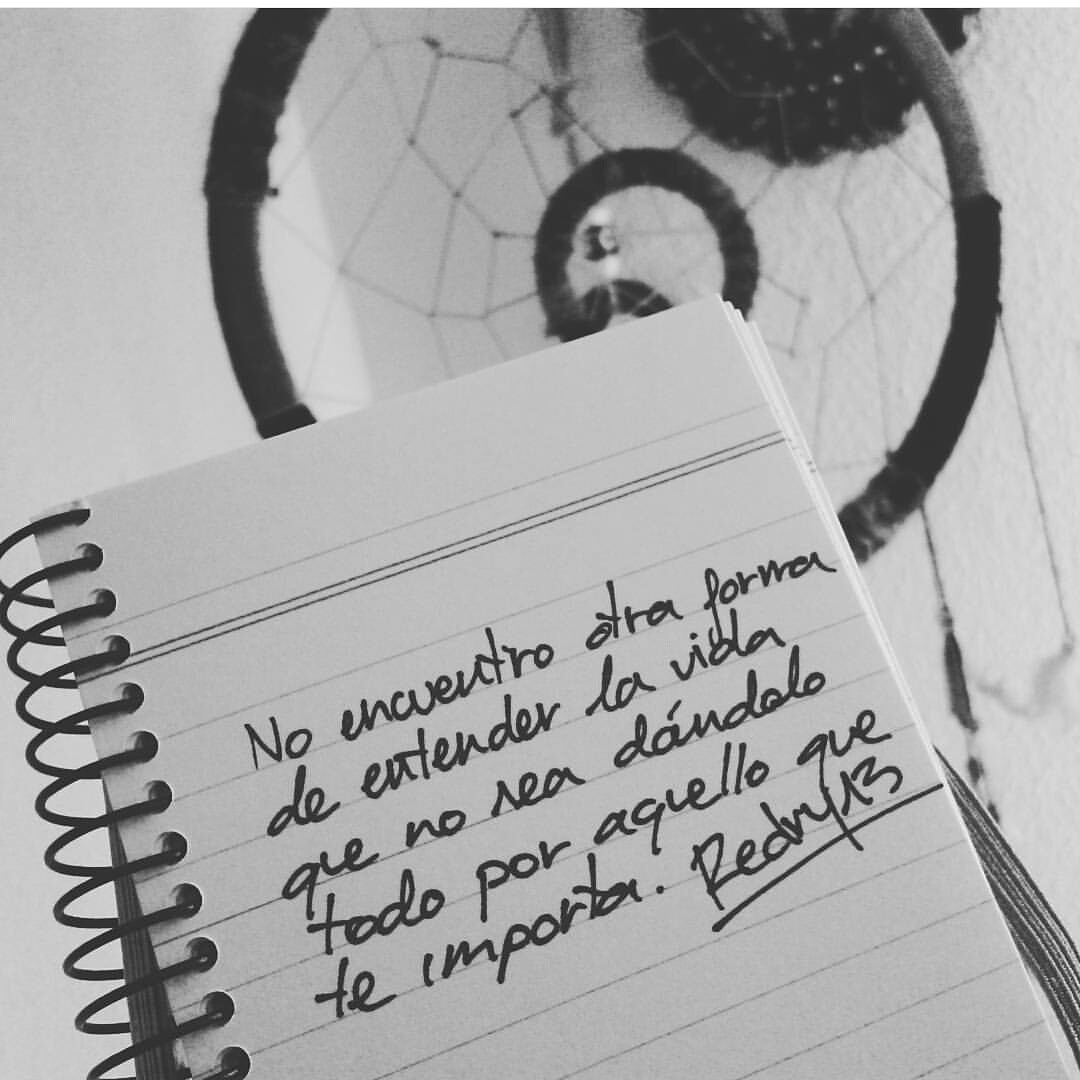 No encuentro otra forma
de entender la vida
que no sea dándolo
todo por aquello que
te importa. Redry13